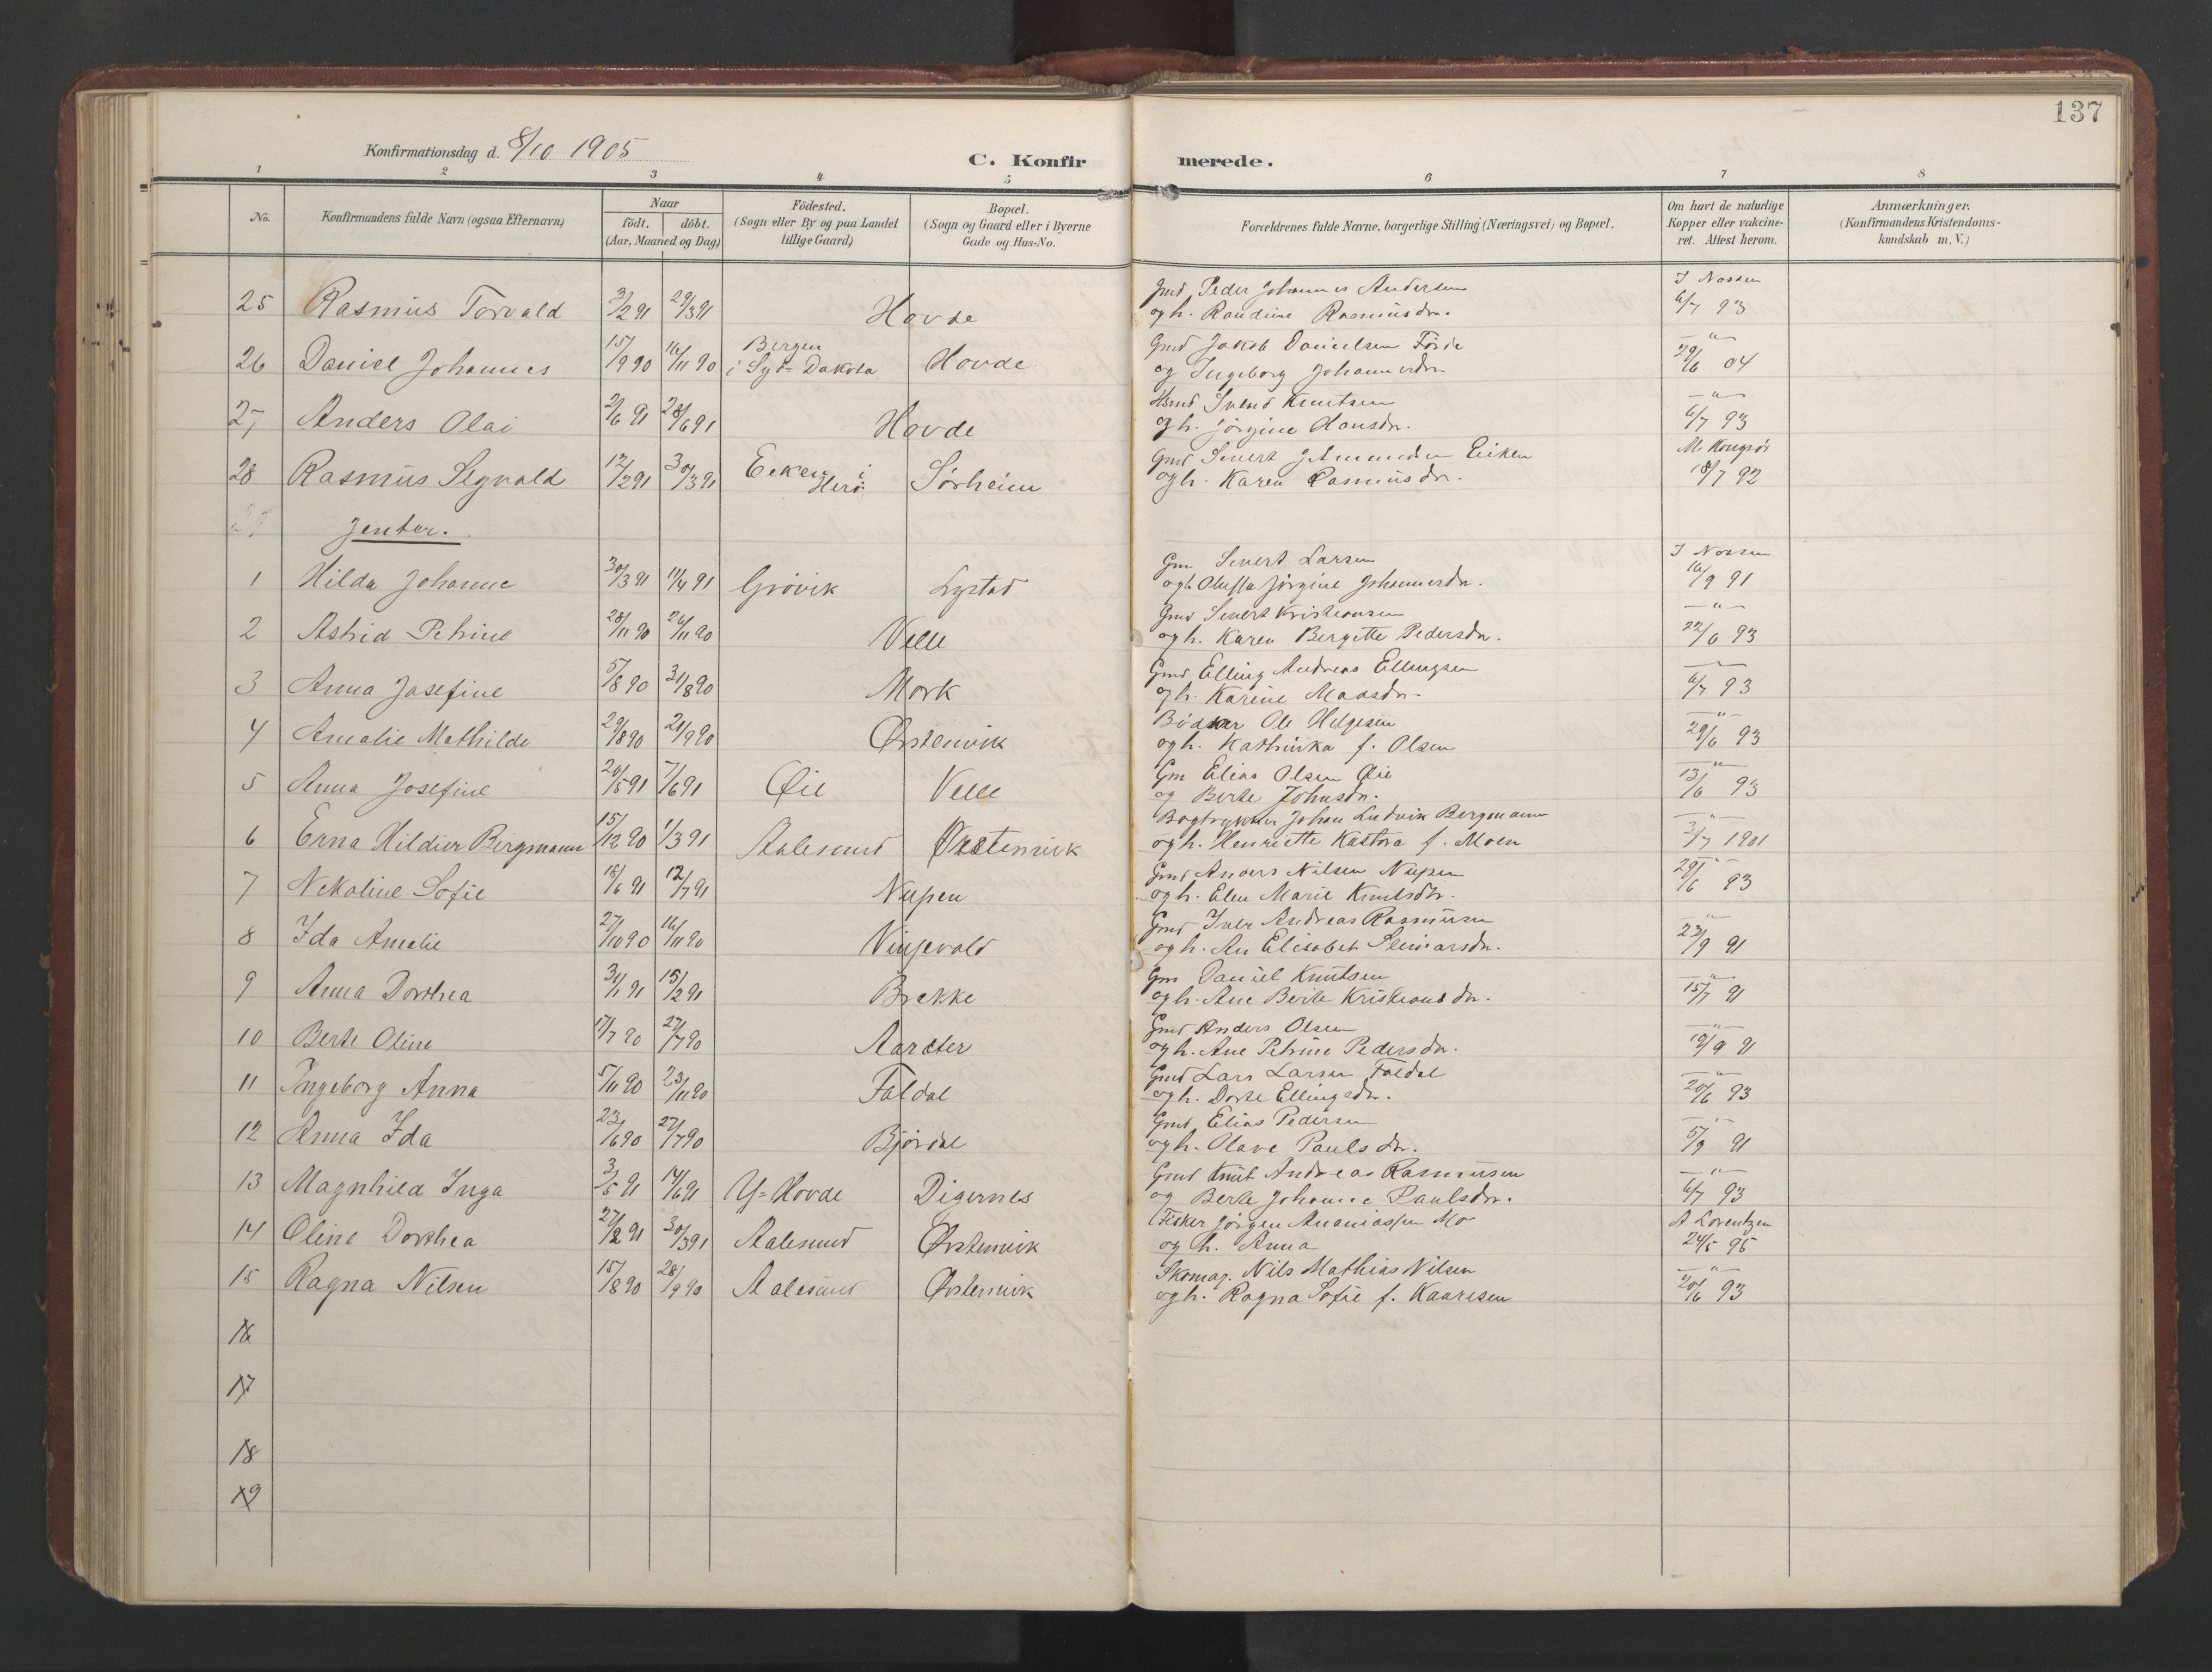 137
Konfirmationsdag d. 8/10 1905
C. Konfirmerede.
1 2 3 4 5 6 7 8
No.
Konfirmandens fulde Navn (ogsaa Efternavn)
Naar
födt. döbt.
(Aar, Maaned og Dag)
Födested.
(Sogn eller By og paa Landet
tillige Gaard)
Bopæl.
(Sogn og Gaard eller i Byerne
Gade og Hus-No.
Forældrenes fulde Navne, borgerlige Stilling (Næringsvei) og Bopæl.
Om havt de naturlige
Kopper eller vakcine-
ret. Attest herom.
Anmærkninger.
(Konfirmandens Kristendoms-
kundskab m. V.)
25 Rasmus Torvald 3/2 91 29/3 91 Hovde Gmd Peder Johannes Andersen J Nossen
og h. Randine Rasmusdr. 6/7 93
26 Daniel Johannes 15/9 90 16/11 90 Bergen Hovde Gmd Jakob Danielsen Förde — " —
i Syd-Dakota og Ingeborg Johannesdr 29/6 04
27 Anders Olai 2/6 91 28/6 91 Hovde Hsmd Svend Knutsen — " —
og h. Jörgine Hansdr. 6/7 93
28 Rasmus Sigvald 12/2 91 30/3 91 Eiken i Herö Sörheim Gmd Sivert Eiken
og h. Karen Rasmusdr. 18/7 92
Jenter.
1 Hilda Johanne 30/3 91 11/4 91 Grövik Lystad Gm Sivert Larsen J Nossen
og h. Oluffa Jörgine Johannesdr. 16/9 91
2 Astrid Petrine 26/11 90 Velle Gmd Sivert Kristiansen — " —
og h. Karen Bergitte Pedersdr. 22/6 93
3 Anna Josefine 5/8 90 31/8 90 Mork Gmd Elling Andreas Ellingsen — " —
og h. Karine Maasdr. 6/7 93
4 Amalie Mathilde 29/8 90 21/9 90 Örstenvik Bödker Ole Helgesen — " —
og h. Kathinka f. Olsen 29/6 93
5 Anna Josefine 20/5 91 7/6 91 Öie Velle Gm Elias Olsen Öie — " —
og Berte Johnsdr. 13/6 93
6 Erna Hildur Bergmann 15/12 90 1/3 91 Aalesund Örstenvik Bogtrykker Johan Ludvik Bergmann — " —
og h. Henriette Kastora f. Moen 3/7 1901
7 Nekoline Sofie 18/6 91 12/7 91 Nupen Gmd Anders Nilsen Nupen — " —
og h. Elen Marie Knutsdr. 29/6 93
8 Ida Amalie 27/10 90 16/11 90 Vinjevold Gmd Iver Andreas Rasmusen — " —
og h. An Elisabet Steinarsdr. 23/9 91
9 Anna Dorthea 31/1 91 15/2 91 Brekke Gm Daniel Knutsen — " —
og h. Ane Berte Kristiansdr. 15/7 91
10 Berte Oline 17/7 90 27/7 90 Aarseter Gmd Anders Olsen — " —
og h. Ane Petrine Pedersdr. 19/9 91
11 Ingeborg Anna 5/11 90 23/11 90 Foldal Gmd Lars Larsen Foldal — " —
og h. Dorte Ellingsdr. 20/6 93
12 Anna Ida 23/6 90 27/7 90 Björdal Gmd Elias Pedersen — " —
og h. Olave Paulsdr. 5/9 91
13 Magnhild Inga 3/5 91 14/6 91 Y-Hovde Digernes Gmd Knut Andreas Rasmusen — " —
og Berte Johanne Paulsdr. 6/7 93
14 Oline Dorthea 27/2 91 30/3 91 Aalesund Örstenvik Fisker Jörgen Ananiassen Mo A Lorentzen
og h. Anna 24/5 95
15 Ragna Nilsen 15/8 90 28/9 90 Aalesund Örstenvik Skomag. Nils Mathias Nilsen — " —
og h. Ragna Sofie f. Kaaresen 20/6 93
16
17
18
19